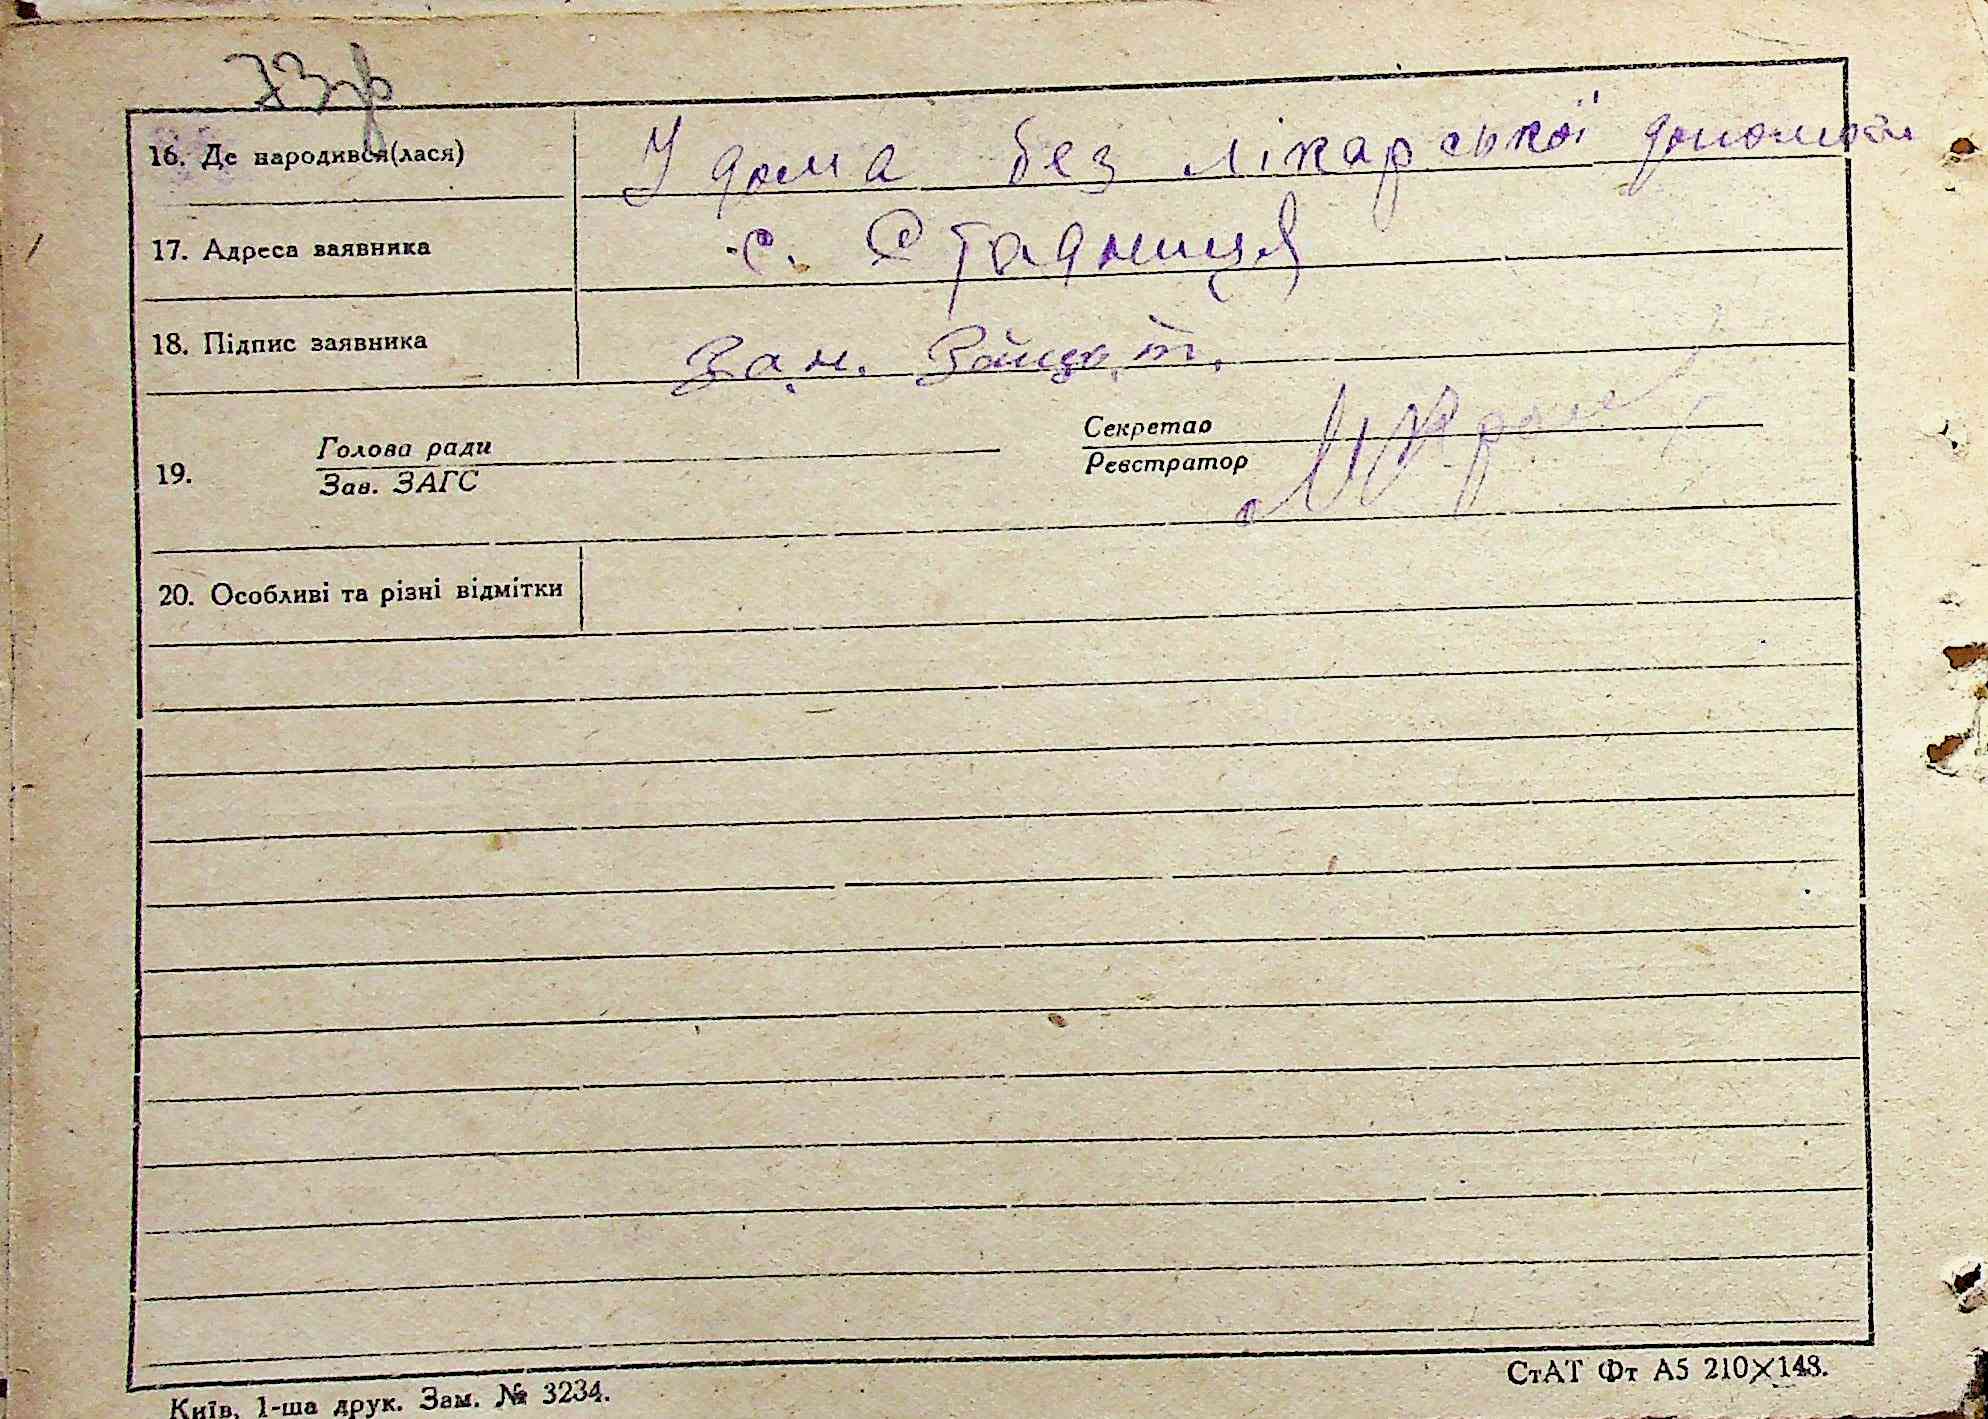 73р
16. Де народився(лася) У дома без лікарської допомоги
17. Адреса заявника с. Стадниця
18. Підпис заявника
19. Голова ради Секретар
Зав. ЗАГС Реєстратор
20. Особливі та різні відмітки
Київ, 1-ша друк. Зам. № 3234.
СтАТ Фт А5 210×148.